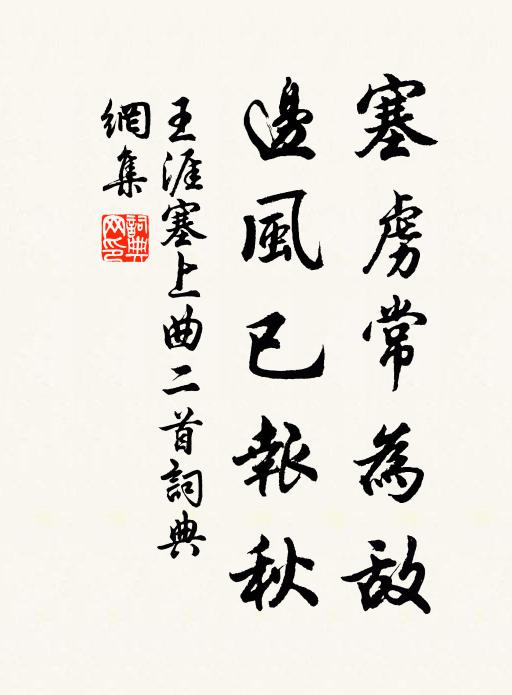 塞虜常為敵
邊風已報秋
王涯塞上曲二首詞典
網集
詞典
網印